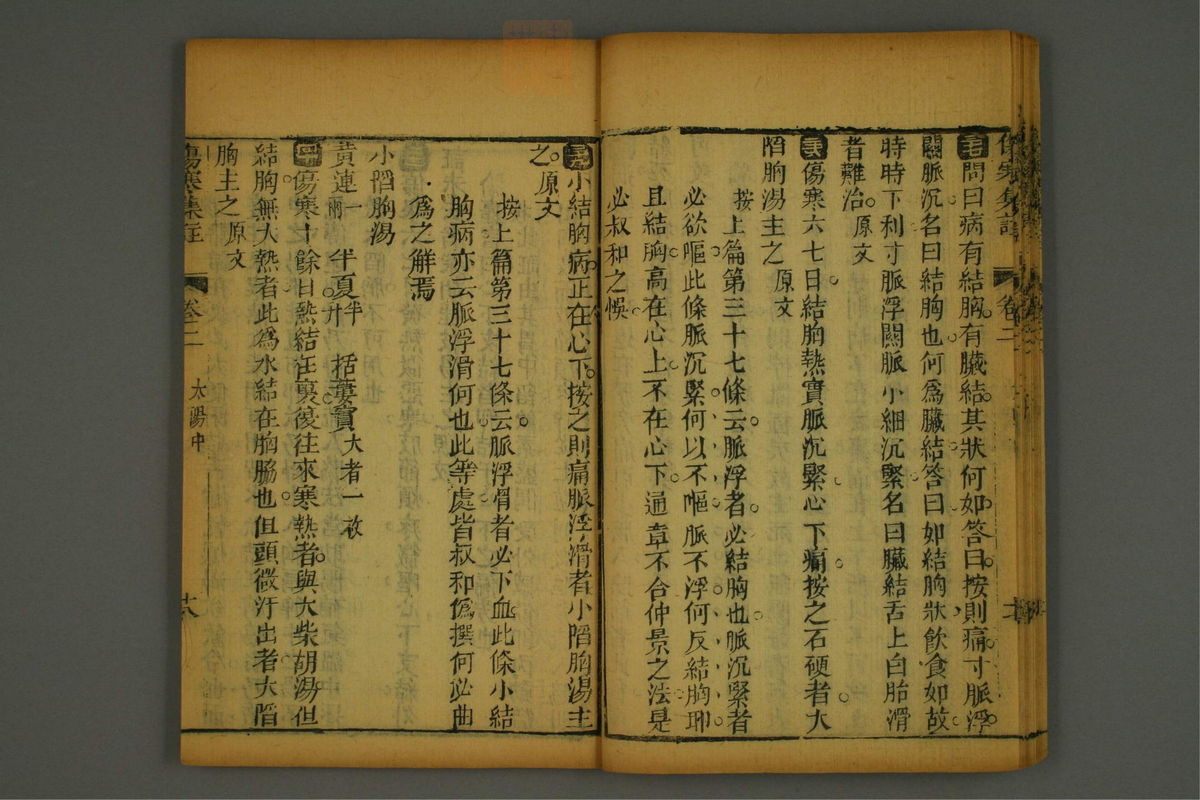 問曰病有結胸有臟結其狀何如答曰按則痛寸脈浮
關脈沉名曰結胸也何爲臟結答曰如結胸狀飲食如故
時時下利寸脈浮關脈小細沉緊名曰臟結舌上白胎滑
者難治原文
傷寒六七日結胸熱實脈沉緊心下痛按之石硬者大
陷胸湯主之原文
按上篇第三十七條云脈浮者必結胸也脈沉緊者
必欲嘔此條脈沉緊何以不嘔脈不浮何反結胸耶
且結胸高在心上不在心下通章不合仲景之法是
必叔和之悞
小結胸病正在心下按之則痛脈浮滑者小陷胸湯主
之原文
按上篇第三十七條云脈浮滑者必下血此條小結
胸病亦云脈浮滑何也此等處皆叔和僞撰何必曲
爲之解焉
小陷胸湯
黃連一兩 半夏半升 括蔞實大者一枚
傷寒十餘日熱結在裏復往來寒熱者與大柴胡湯但
結胸無大熱者此爲水結在胸脇也但頭微汗出者大陷
胸主之原文
傷寒集註 卷二 太陽中